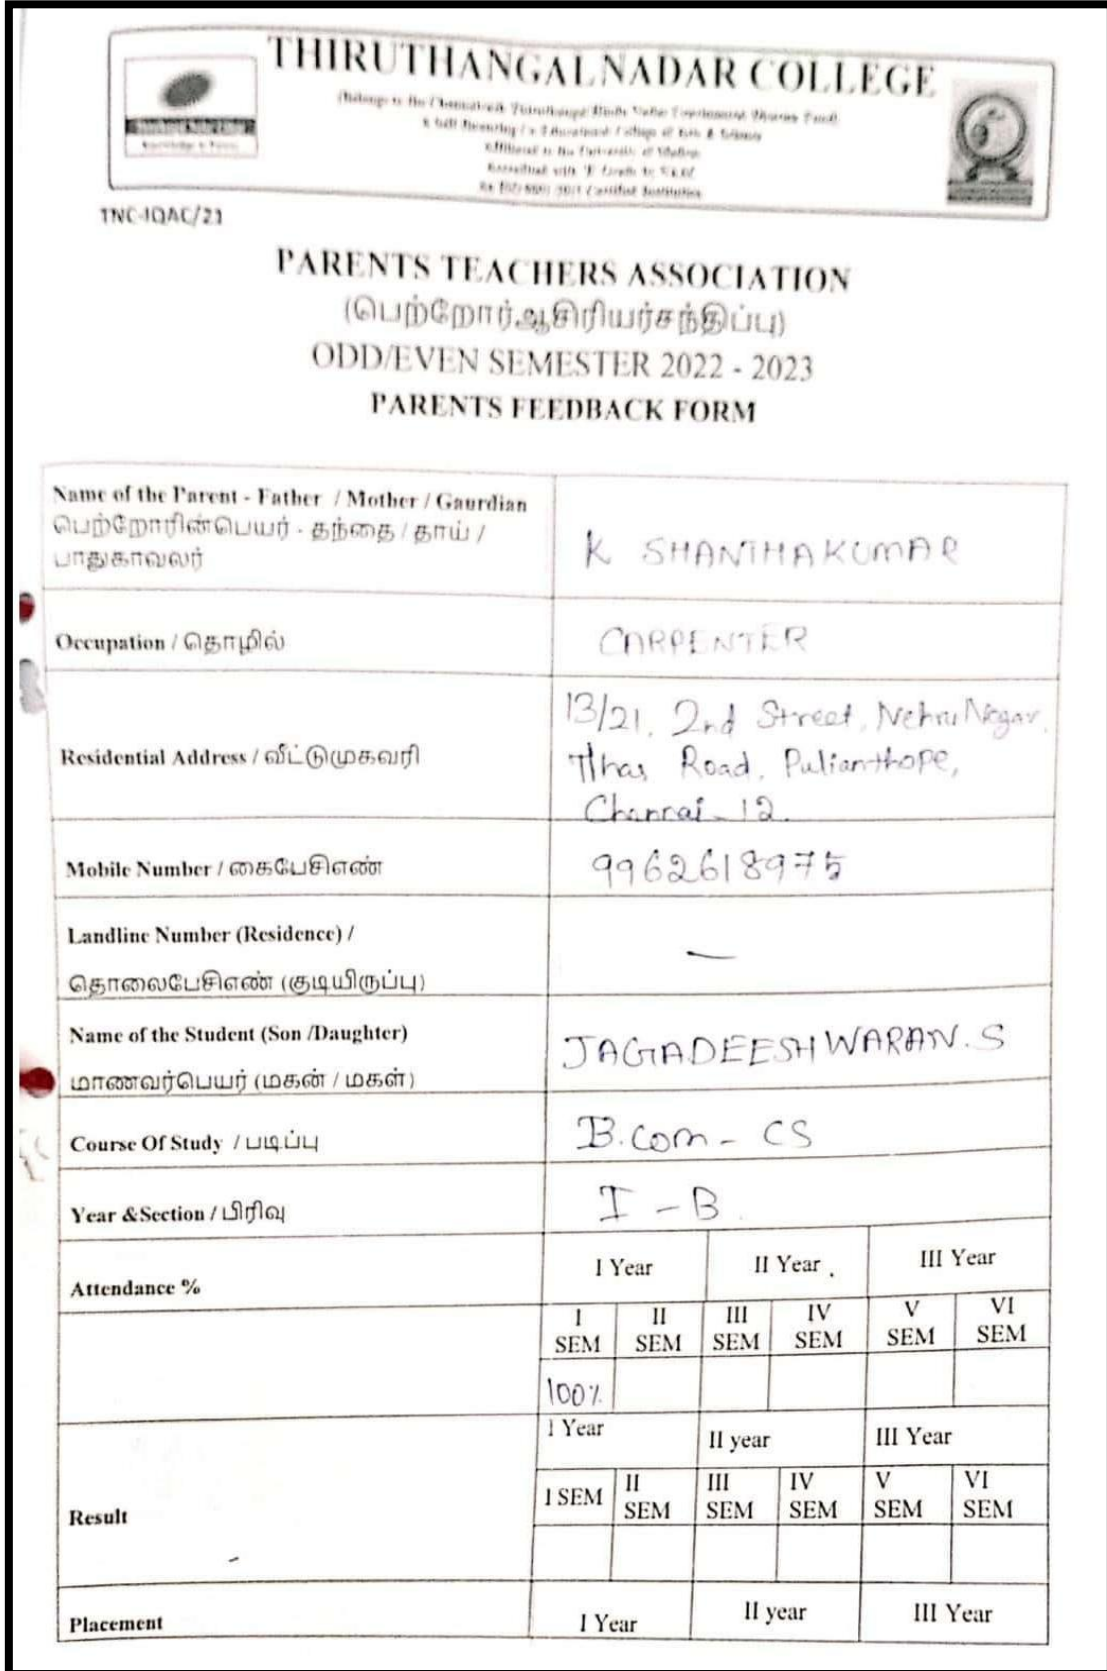 THIRUTHANGAL NADAR COLLEGE
TNC-IQAC/21
PARENTS TEACHERS ASSOCIATION
(பெற்றோர்ஆசிரியர்சந்திப்பு)
ODD/EVEN SEMESTER 2022 - 2023
PARENTS FEEDBACK FORM
Name of the Parent - Father / Mother / Gaurdian
பெற்றோரின்பெயர் - தந்தை / தாய் /
பாதுகாவலர்
K SHANTHAKUMAR
Occupation / தொழில்
CARPENTER
Residential Address / வீட்டுமுகவரி
13/21, 2nd Street, Nehru Nagar,
Road, Pulianthope,
Chennai-12.
Mobile Number / கைபேசிஎண்
9962618975
Landline Number (Residence) /
தொலைபேசிஎண் (குடியிருப்பு)
—
Name of the Student (Son /Daughter)
மாணவர்பெயர் (மகன் / மகள்)
JAGADEESHWARAN.S
Course Of Study / படிப்பு
B.com - CS
Year &Section / பிரிவு
I - B
Attendance %
I Year II Year III Year
I II III IV V VI
SEM SEM SEM SEM SEM SEM
100%
I Year II year III Year
Result
I SEM II III IV V VI
SEM SEM SEM SEM SEM
Placement
I Year II year III Year